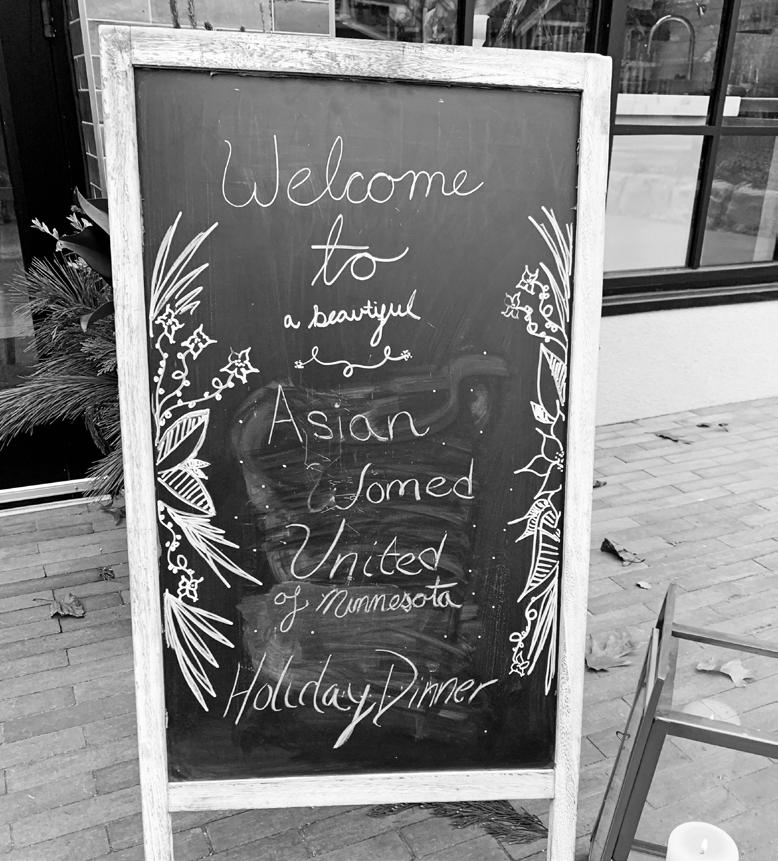 Welcome
to
a beautiful
Asian
Womed
United
of Minnesota
Holiday Dinner